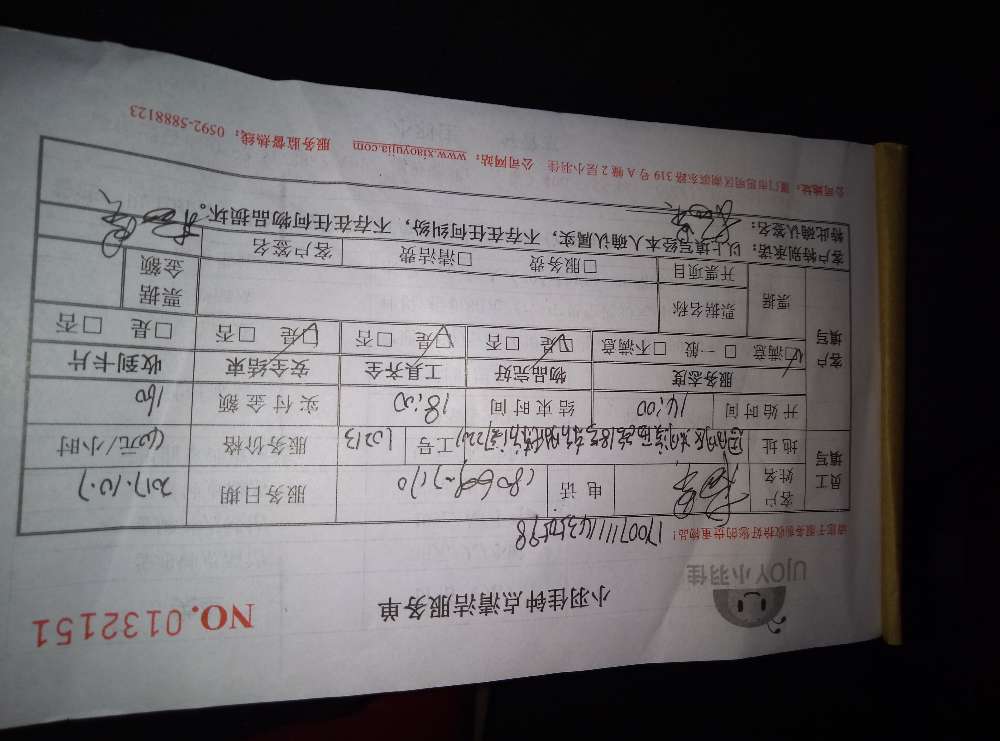 UJOY小羽佳
小羽佳钟点清洁服务单
NO.0132151
请您于服务前收拾好您的贵重物品!
员工填写
客户姓名 电话 服务日期 2017.10.7
地址 工号 10213 服务价格 40元/小时
开始时间 14:00 结束时间 18:00 实付金额 160
客户填写
服务态度 物品完好 工具齐全 安全结束 收到卡片
☑满意 □一般 □不满意 ☑是 □否 ☑是 □否 ☑是 □否 □是 □否
票据 票据名称 票据金额
开票项目 □服务费 □清洁费 客户签名
客户特别承诺:以上填写经本人确认属实,不存在任何纠纷,不存在任何物品损坏。
特此确认签名:
公司地址:厦门市思明区湖滨东路319号A幢2层小羽佳 公司网站:www.xiaoyujia.com 服务监督热线:0592-5888123